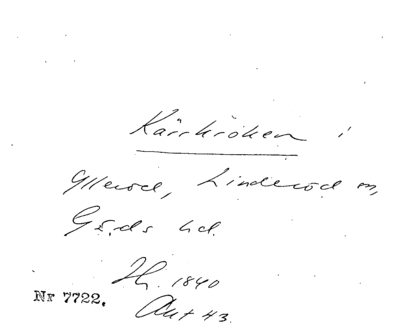 Kärrkröken i
Yllered, Linderöd sn,
Gärds hd.
H. 1840
Nr 7722.
Akt 43.